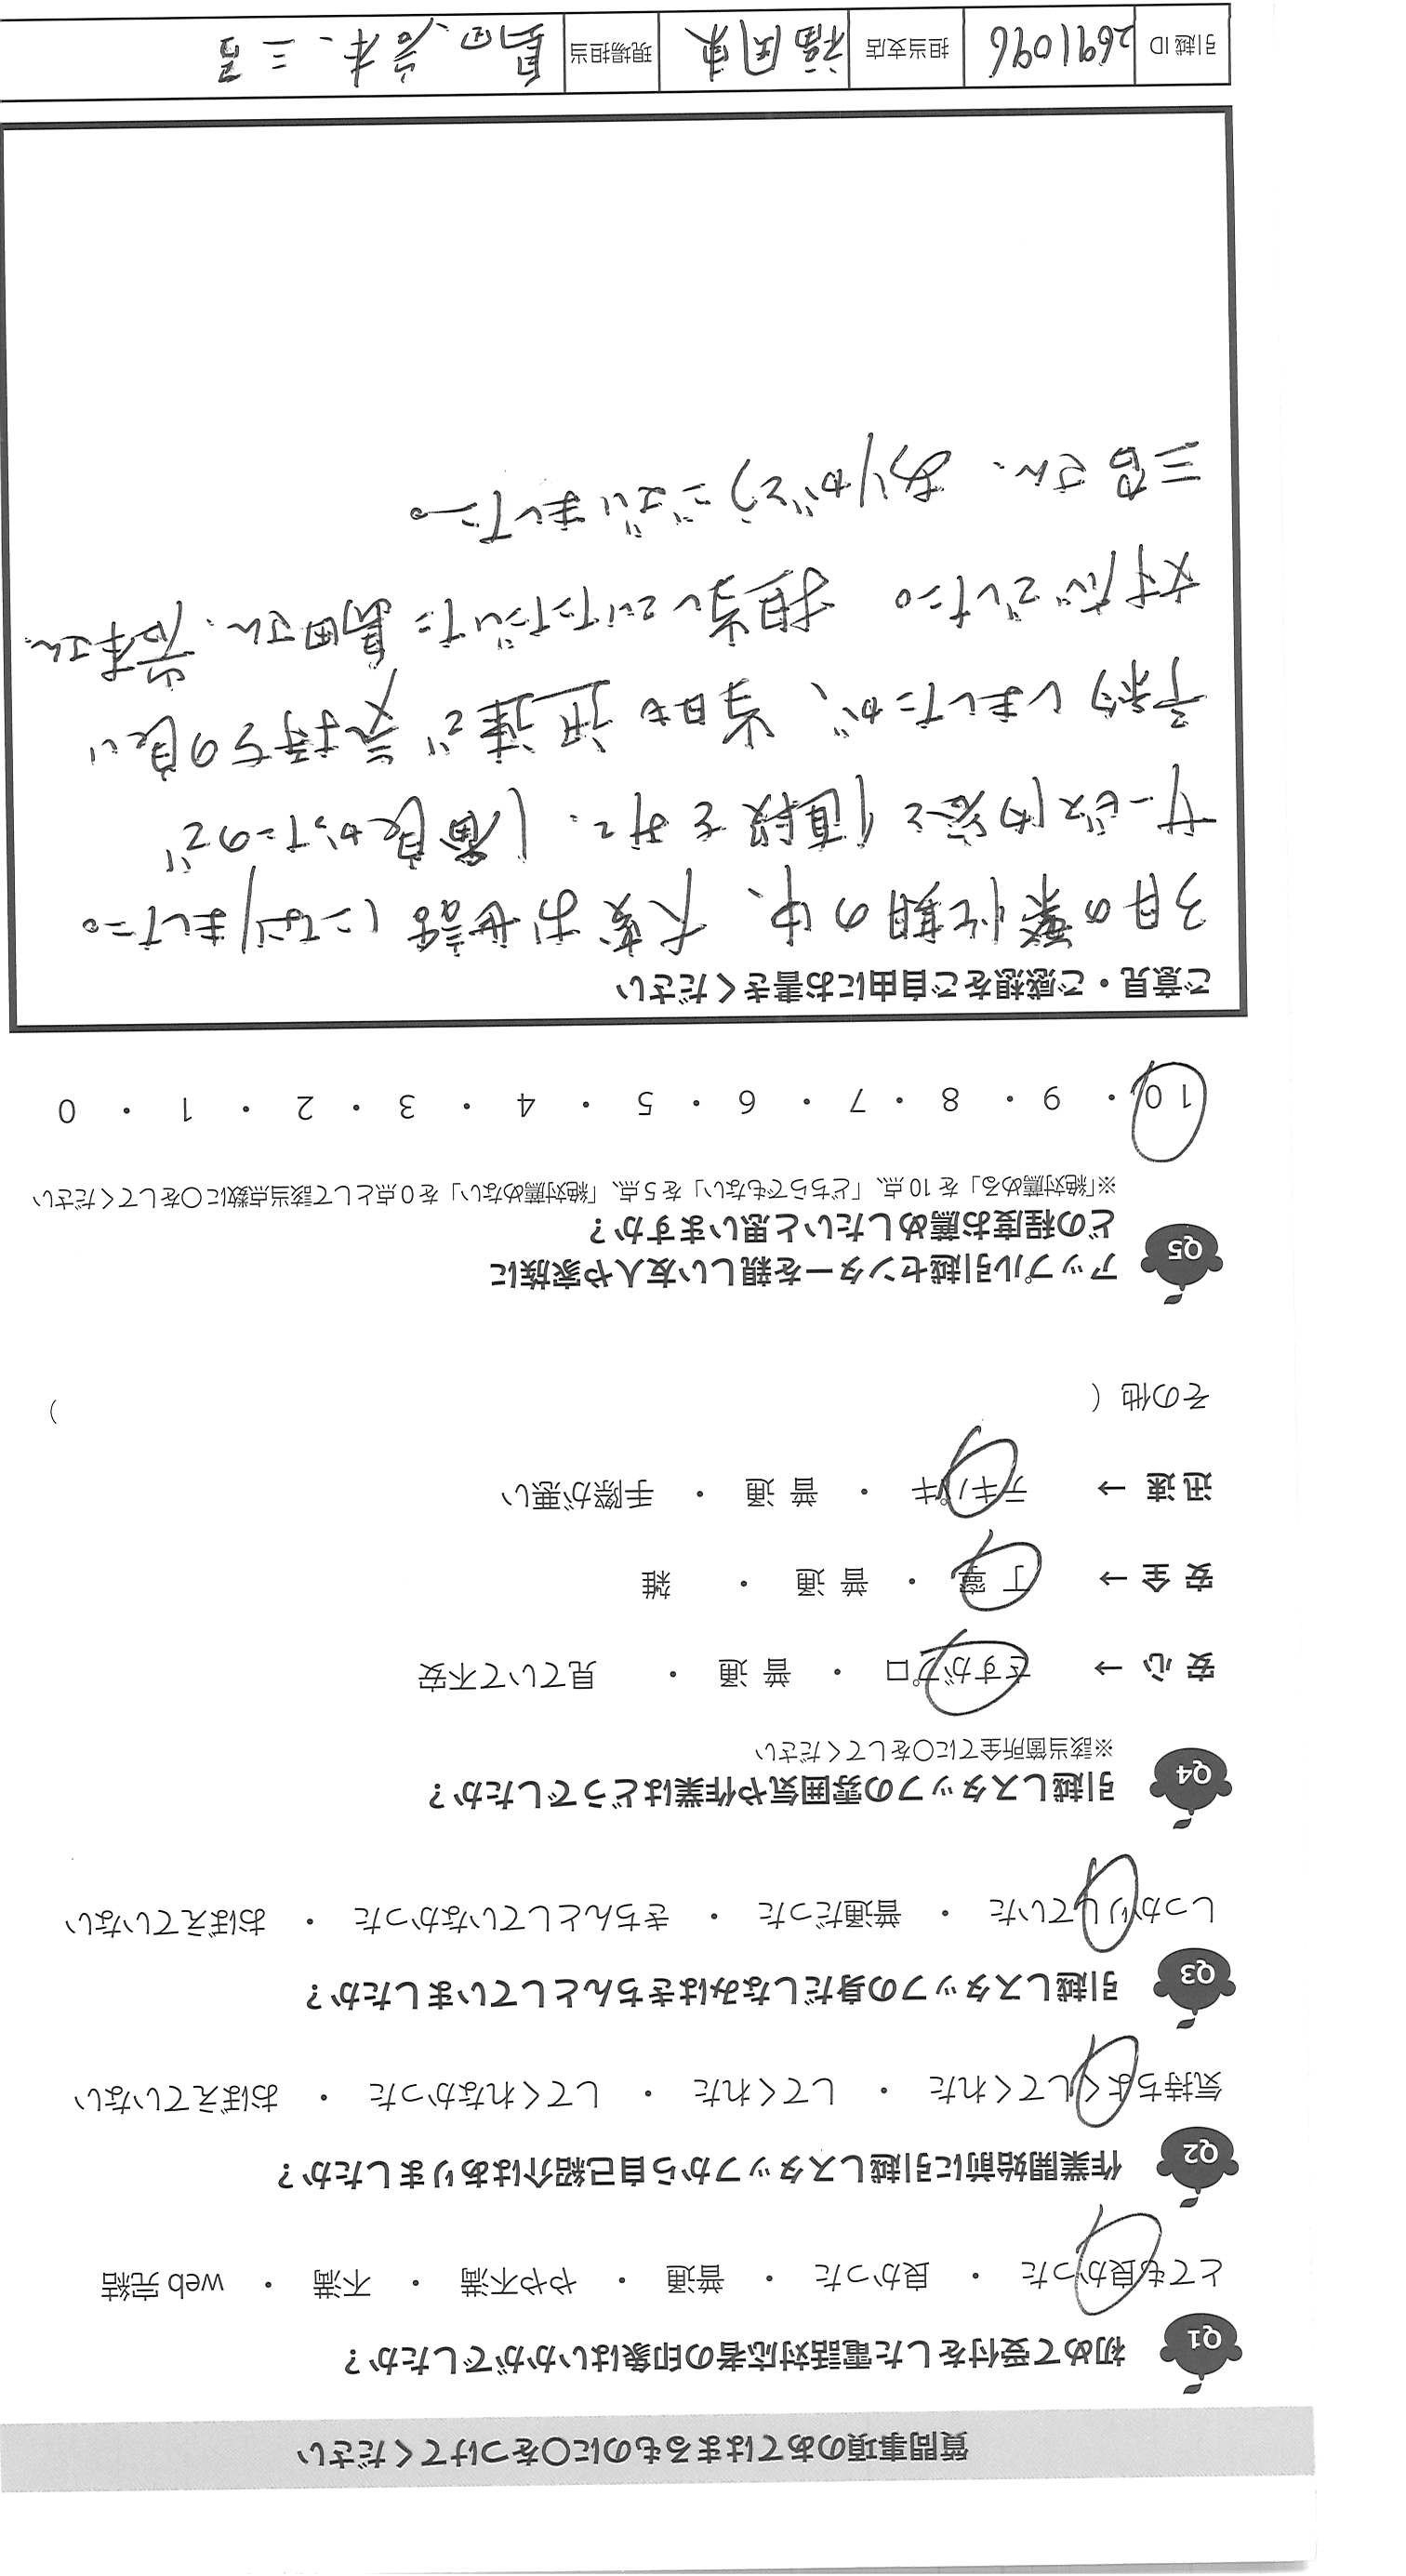 質問事項のあてはまるものに〇をつけてください
Q1 初めて受付をした電話対応者の印象はいかがでしたか？
とても良かった ・ 良かった ・ 普通 ・ やや不満 ・ 不満 ・ web 完結
Q2 作業開始前に引越しスタッフから自己紹介はありましたか？
気持ちよくしてくれた ・ してくれた ・ してくれなかった ・ おぼえていない
Q3 引越しスタッフの身だしなみはきちんとしていましたか？
しっかりしていた ・ 普通だった ・ きちんとしていなかった ・ おぼえていない
Q4 引越しスタッフの雰囲気や作業はどうでしたか？
※該当箇所全てに〇をしてください
安 心 → さすがプロ ・ 普 通 ・ 見ていて不安
安 全 → 丁 寧 ・ 普 通 ・ 雑
迅 速 → テキパキ ・ 普 通 ・ 手際が悪い
その他（ ）
Q5 アップル引越センターを親しい友人や家族に
どの程度お薦めしたいと思いますか？
※「絶対薦める」を 10 点、「どちらでもない」を 5 点、「絶対薦めない」を 0 点として該当点数に〇をしてください
10 ・ 9 ・ 8 ・ 7 ・ 6 ・ 5 ・ 4 ・ 3 ・ 2 ・ 1 ・ 0
ご意見・ご感想をご自由にお書きください
3月の繁忙期の中、大変お世話になりました。
サービス内容と値段を見て、1番良かったので
予約しましたが、当日も迅速で気持ちの良い
対応でした。担当していただいた島田さん、岩本さん、
三呂さん、ありがとうございました。
引越 ID 2691096 担当支店 福岡東 現場担当 島田、岩本、三呂